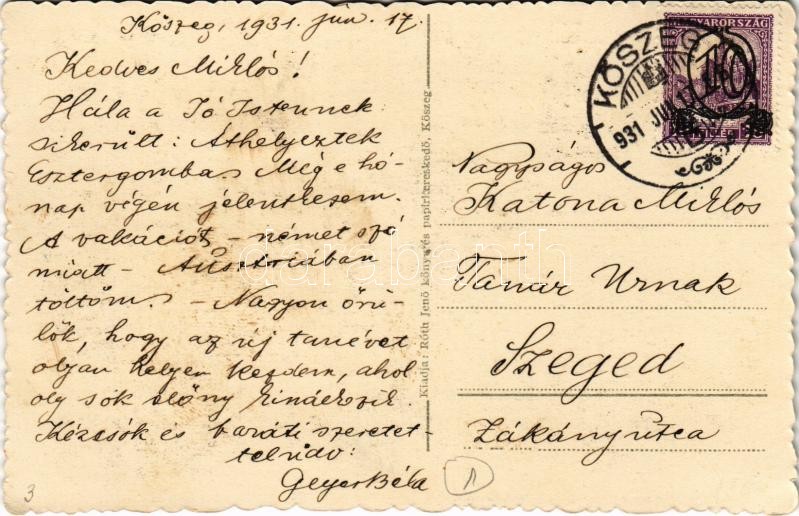 Kőszeg, 1931. jún. 17.
Kedves Miklós!
Hála a Jó Istennek
sikerült: Áthelyeztek
Esztergomba. Még e hó-
nap végén jelentkezem.
A vakációt – német szó
miatt – Ausztriában
töltöm. – Nagyon örü-
lök, hogy az új tanévet
olyan helyen kezdem, ahol
oly sok előny kínálkozik.
Kézcsók és baráti szeretet
Geyer Béla
Kiadja: Róth Jenő könyv és papirkereskedő, Kőszeg.
MAGYARORSZÁG
10
KŐSZEG
931 JUN 17
Nagyságos
Katona Miklós
Tanár Urnak
Szeged
Zákány utca
darabanth
3
1